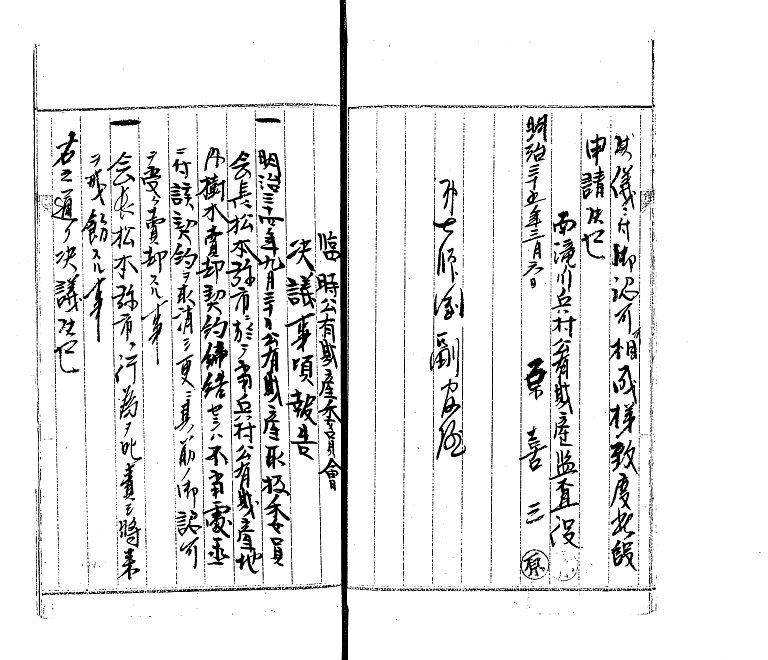 儀ニ付御認可相成様致度此段
申請候也
西滝川兵村公有財産監査役
明治三十五年三月六日
喜三
第七師団副官殿
臨時公有財産委員會
決議事項報告
一明治三十四年九月三十日公有財産取扱委員
会長松本弥市ニ於テ当兵村公有財産地
内樹木賣却契約締結セシハ不当處置
ニ付該契約ヲ取消シ更ニ其筋ノ御認可
ヲ受ケ賣却スル事
一会長松本弥市ノ行為ヲ叱責シ将来
ヲ戒飭スル事
右之通リ決議候也